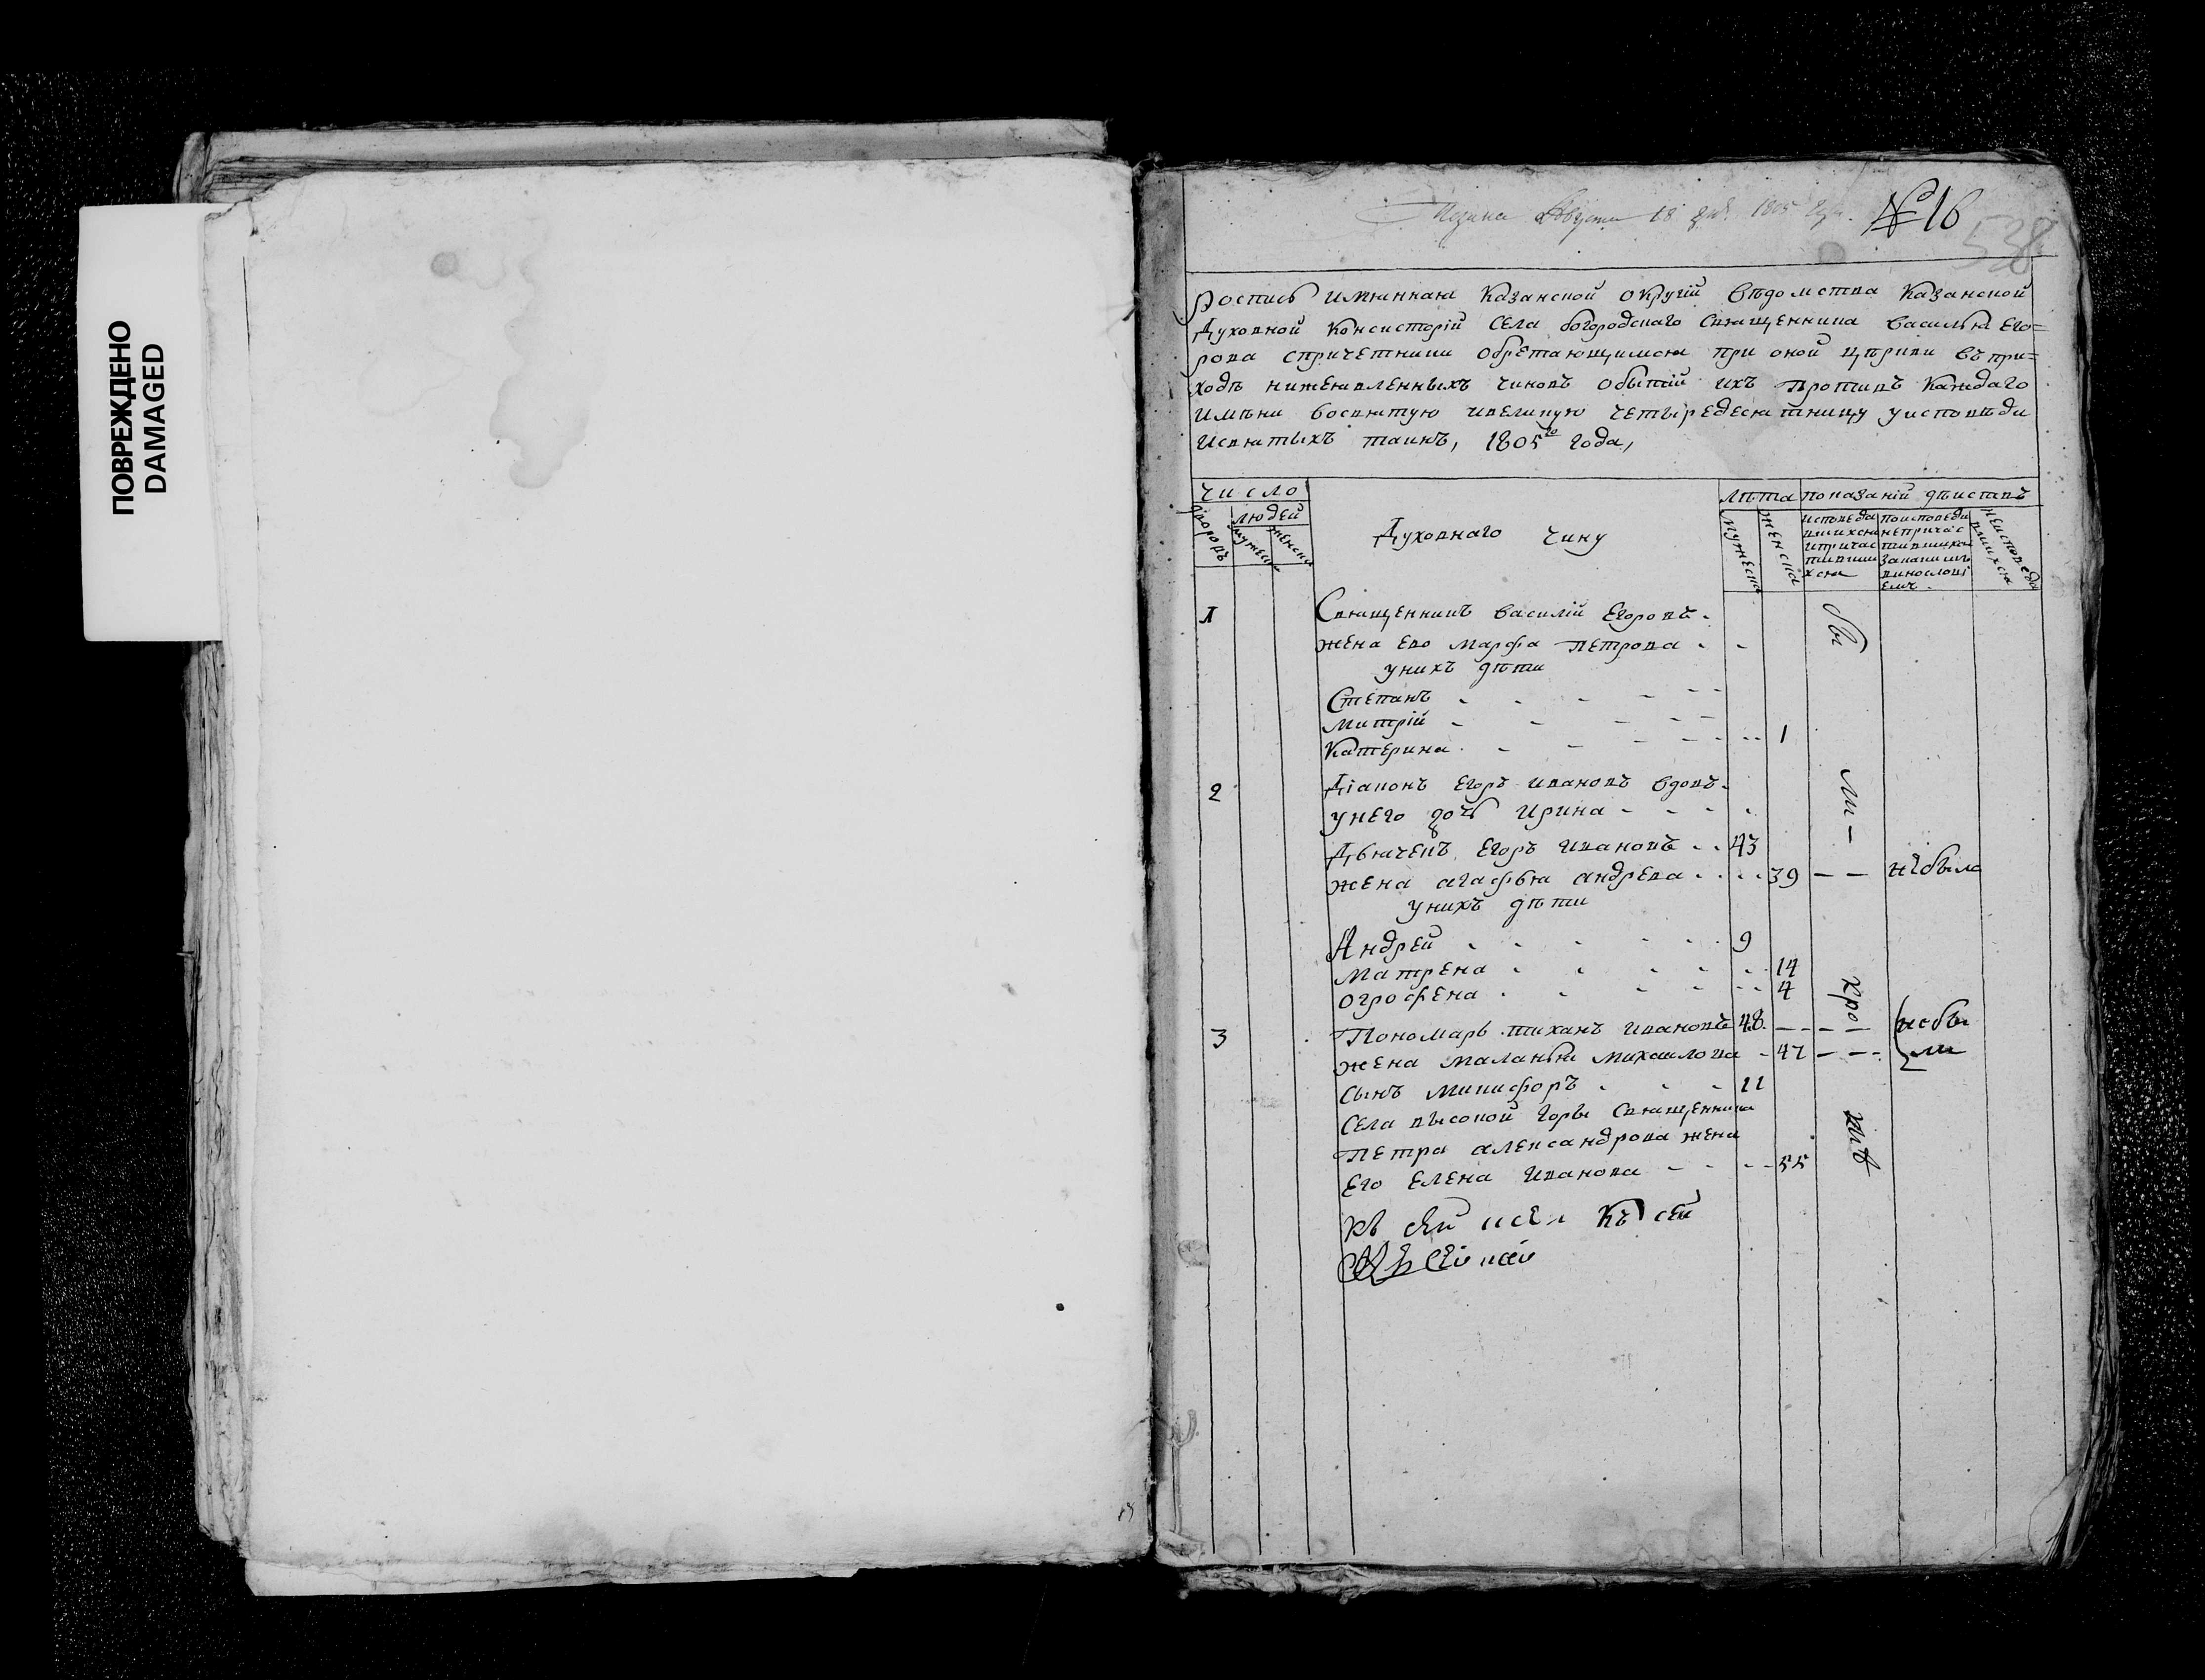 ПОВРЕЖДЕНО
DAMAGED
Августа 18 1805
№ 16
538
роспись имянная казанской округи ведомства казанской
духовной консисторіи села богородскаго священника василья Его=
рова спричетники обретающимся при оной церкви въ при=
ходѣ нижеявленныхъ чиновъ обытіи ихъ противъ каждаго
имяни восвятую ивеликую четыредесятницу уисповѣди
исвятыхъ таинъ, 1805го года,
число
людей
дворовъ
мужеска
женска
Духовнаго чину
лѣта
мужеска
женска
показаніи дѣиствъ
исповеда
вшихся
ипричас
тивши
хся
поисповеди
непричас
тившихся
закакимъ
винослові
емъ
неисповеда
вшихся
1
Священникъ василій Егоровъ
жена ево марфа петрова
унихъ дѣти
Степанъ
митрій
катерина 1
2
Діаконъ Егоръ ивановъ вдовъ
унего дочь ирина
Дьячекъ Егоръ ивановъ 43
жена агафья андрева 39 — — не было
унихъ дѣти
Андрей 9
матрена 14
огрофена 4
3
Пономарь тиханъ ивановъ 48 — — — небы
жена маланья михаилова 47 — — ли
сынъ микифоръ 11
села высокой горы священника
петра александрова жена
его елена иванова 55
бы
ли
къ сей къ сей